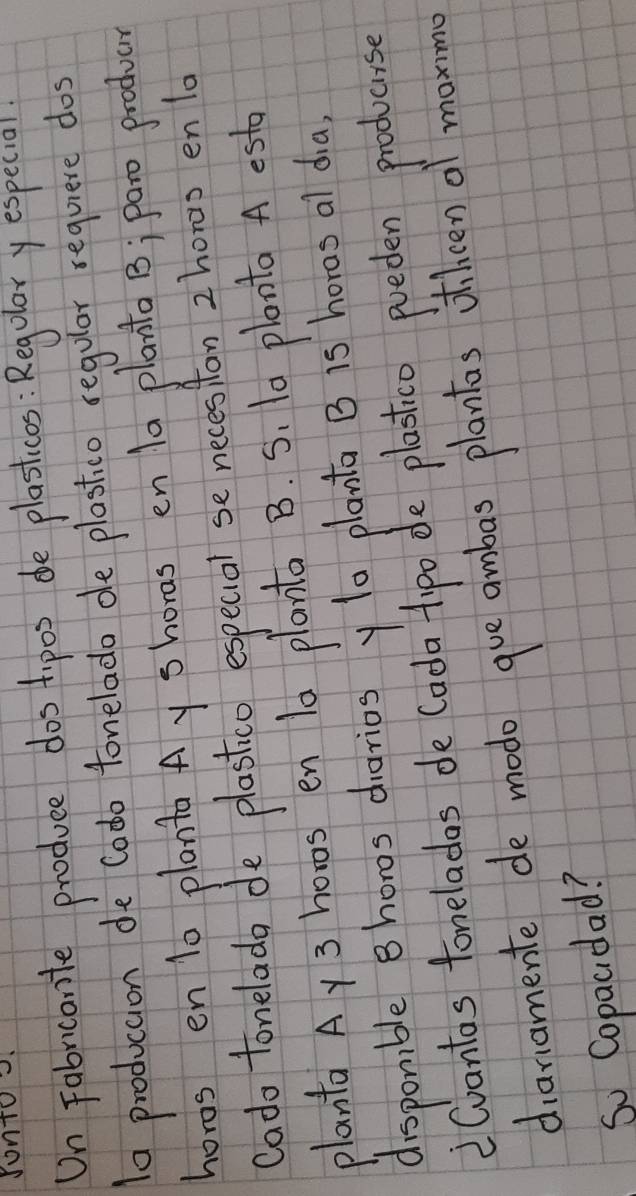 Punto 5.
Un Fabricante produce dos tipos de plasticos: Regular y especial.
la produccion de Cada tonelada de plastico regular requiere dos
horas en la planta A y 5 horas en la planta B; para producir
Cada tonelada de plastico especial se necesitan 2 horas en la
planta A y 3 horas en la planta B. Si la planta A esta
disponible 8 horas diarias y la planta B 15 horas al dia,
¿Cuantas toneladas de Cada tipo de plastico pueden producirse
diariamente de modo que ambas plantas utilicen al maximo
Su Capacidad?